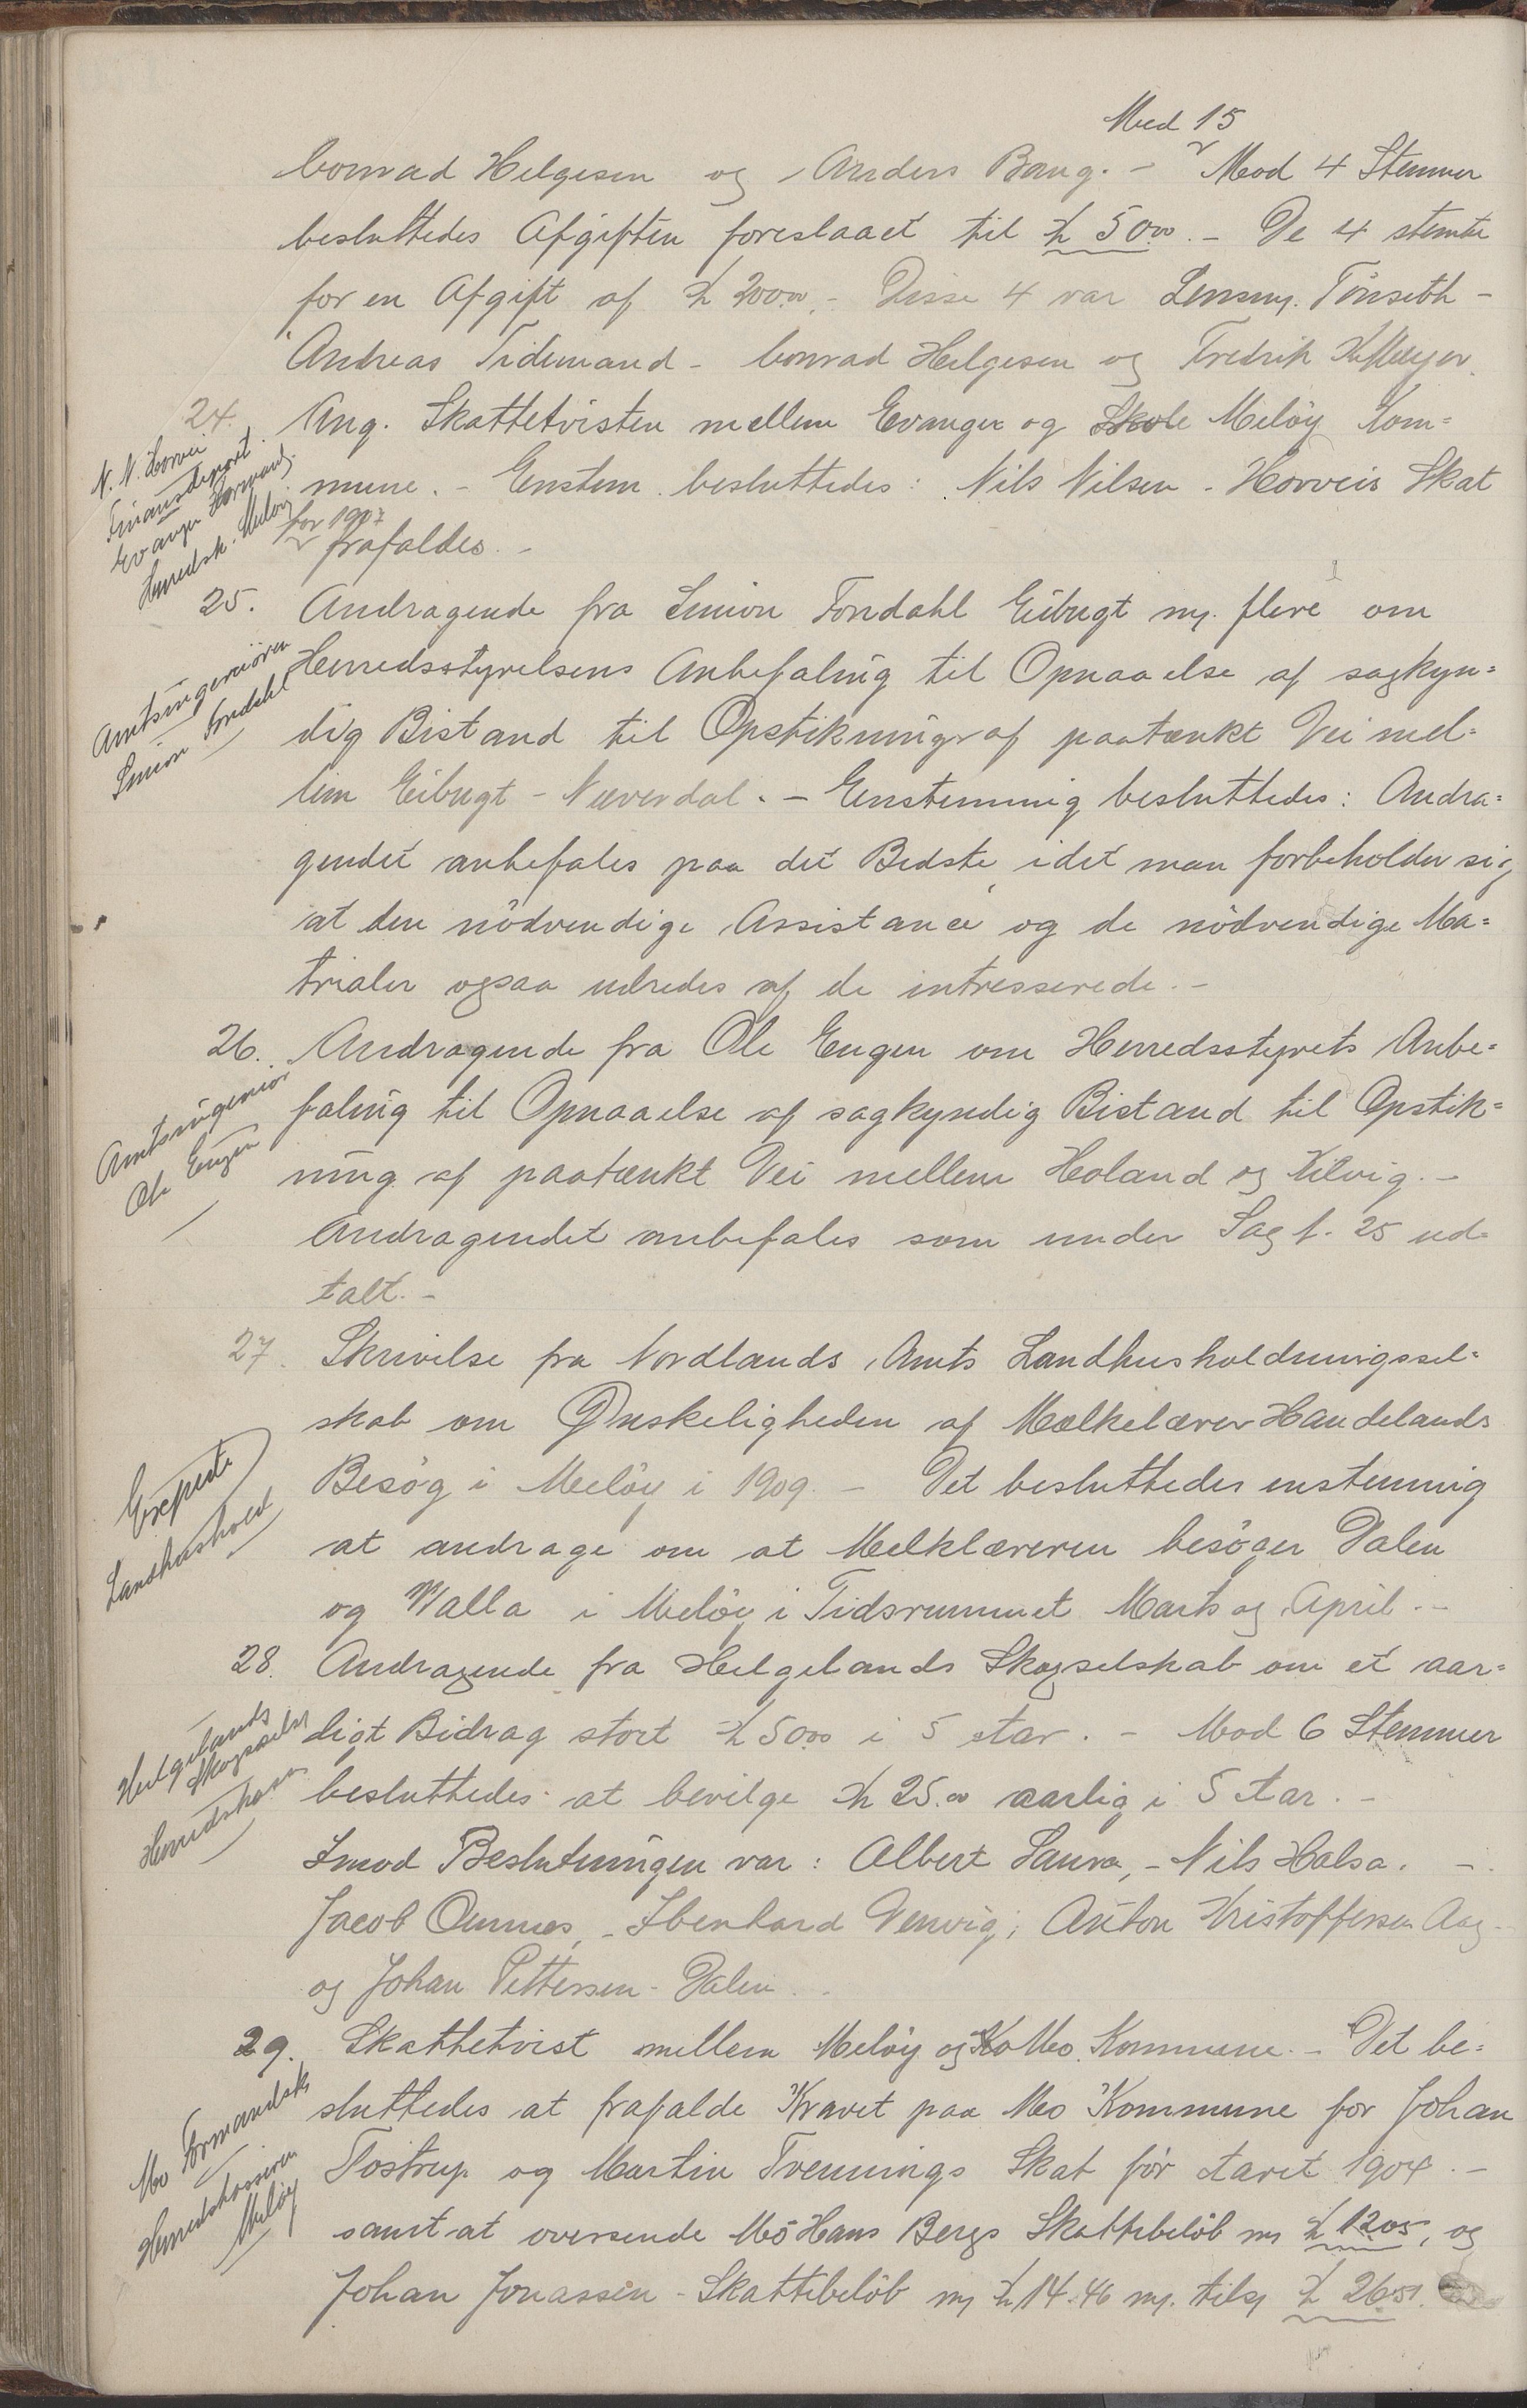 Med 15
Conrad Helgesen og Anders Bang. - Mod 4 Stemmer
besluttedes Afgiften foreslaaet til Kr 50.00. - De 4 stemte
for en Afgift af Kr 200.00. - Disse 4 var Lensm. Tönseth -
Andreas Tidemand - Conrad Helgesen og Fredrik K Meyer.
24. Ang. Skattetvisten mellem Evanger og Skole Meløy Kom=
N. N. Horvei
Finansdepart.
Evanger Formand.
Herredsk. Meløy
mune. - Enstem. besluttedes: Nils Nilsen - Horveis Skat
for 1907
frafaldes. -
25. Andragende fra Simon Fondahl Eibugt m. flere om
Amtsingeniøren
Simon Fondahl
Herredsstyrelsens Anbefaling til Opnaaelse af sagkyn=
dig Bistand til Opstikning af paatænkt Vei mel=
lem Eibugt - Næverdal. - Enstemmig besluttedes: Andra=
gendet anbefales paa det Bedste, idet man forbeholder sig
at den nödvendige Assistance og de nödvendige Ma=
trialer ogsaa udredes af de intresserede. -
26. Andragende fra Ole Engen om Herredsstyrets Anbe=
Amtsingeniør
Ole Engen
faling til Opnaaelse af sagkyndig Bistand til Opstik=
ning af paatænkt Vei mellem Holand og Kilvig. -
Andragendet anbefales som under Sag f. 25 ud=
talt. -
27. Skrivelse fra Nordlands Amts Landhusholdningssel=
skab om Ønskeligheden af Mælkelærer Handelands
Besøg i Meløy i 1909. - Det besluttedes enstemmig
Landhushold
at andrage om at Melklæreren besöger Dalen
og Walla i Meløy i Tidsrummet Marts og April. -
28. Andragende fra Helgelands Skogselskab om et aar=
Helgelands
Skogselsk
Herredskass
ligt Bidrag stort Kr 50.00 i 5 Aar. - Mod 6 Stemmer
besluttedes at bevilge Kr 25.00 aarlig i 5 Aar. -
Imod Beslutningen var: Albert Saura, - Nils Halsa. -
Jacob Ournes, - Ibenhard Venvig, Anton Kristoffersen Aag -
og Johan Pettersen - Dalen. -
29. Skattetvist mellem Meløy og Mo Kommune. - Det be=
Mo Formandsk
Herredskasseren
Meløy
sluttedes at frafalde Kravet paa Mo Kommune for Johan
Tostrup og Martin Trennings Skat for Aaret 1904. -
samt at oversende Mo Hans Bergs Skattebelöb m Kr 12.05, og
Johan Jonassen - Skattebelöb m Kr 14.46 m. tils Kr 26.51.